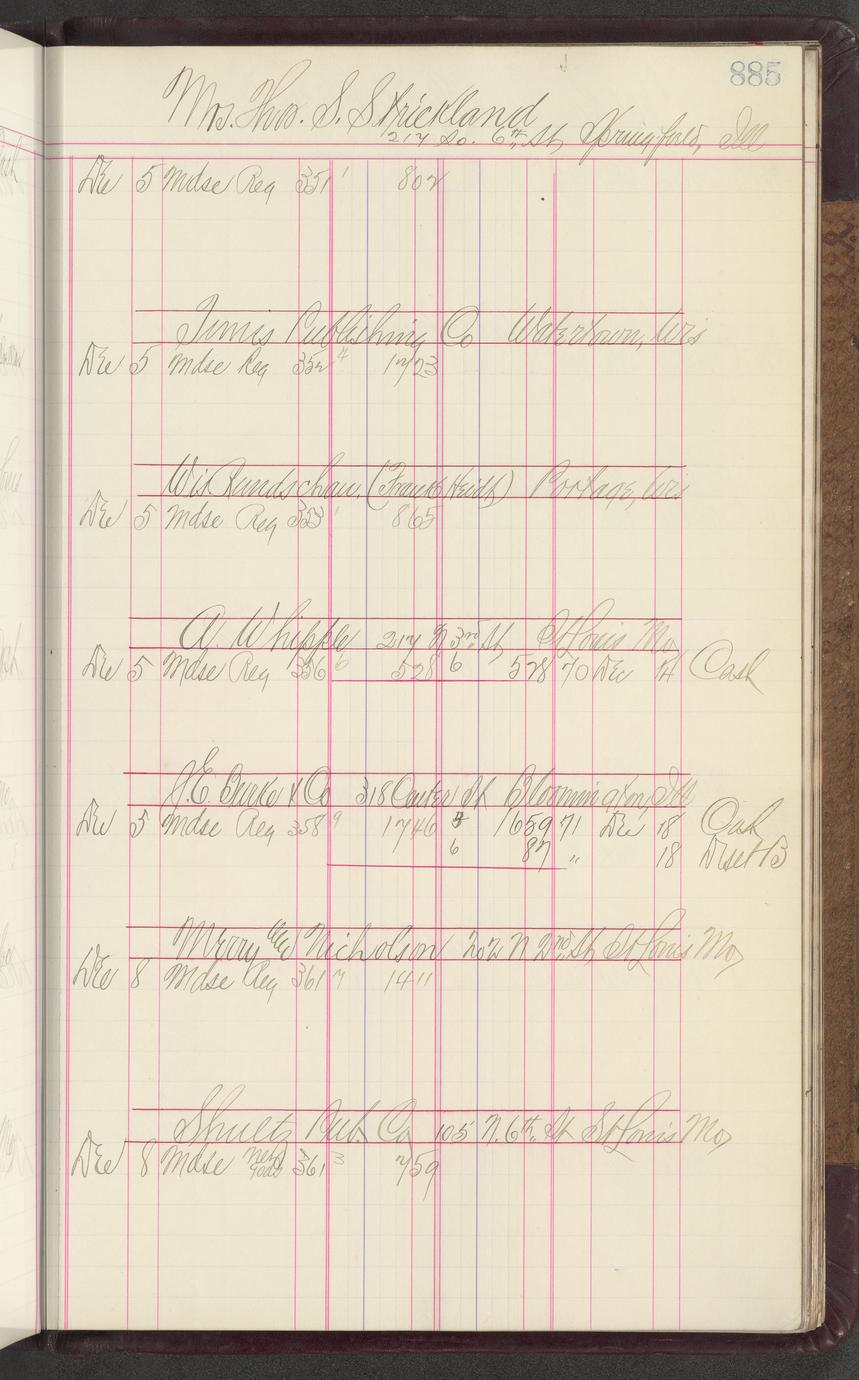 885
Mrs. Thos. S. Strickland
217 So. 6th St, Springfield, Ill
Dec 5 Mdse Reg 351 1 802
Times Publishing Co Watertown, Wis
Dec 5 Mdse Reg 352 4 1723
Wis Rundschau. (Frank Heidt) Portage, Wis
Dec 5 Mdse Reg 353 1 865
A. Whipple 217 N 3rd St, St Louis Mo
Dec 5 Mdse Reg 356 6 528 6 528 70 Dec 14 Cash
J. E. Burke & Co 318 Center St Bloomington, Ill
Dec 5 Mdse Reg 358 9 1746 1659 71 Dec 18 Cash
6 87 " 18 Disct B
Merry & Nicholson 202 N 2nd St, St Louis Mo,
Dec 8 Mdse Reg 361 7 14 "
Shultz Pub. Co 105 N. 6th St St Louis Mo,
Dec 8 Mdse 361 3 759